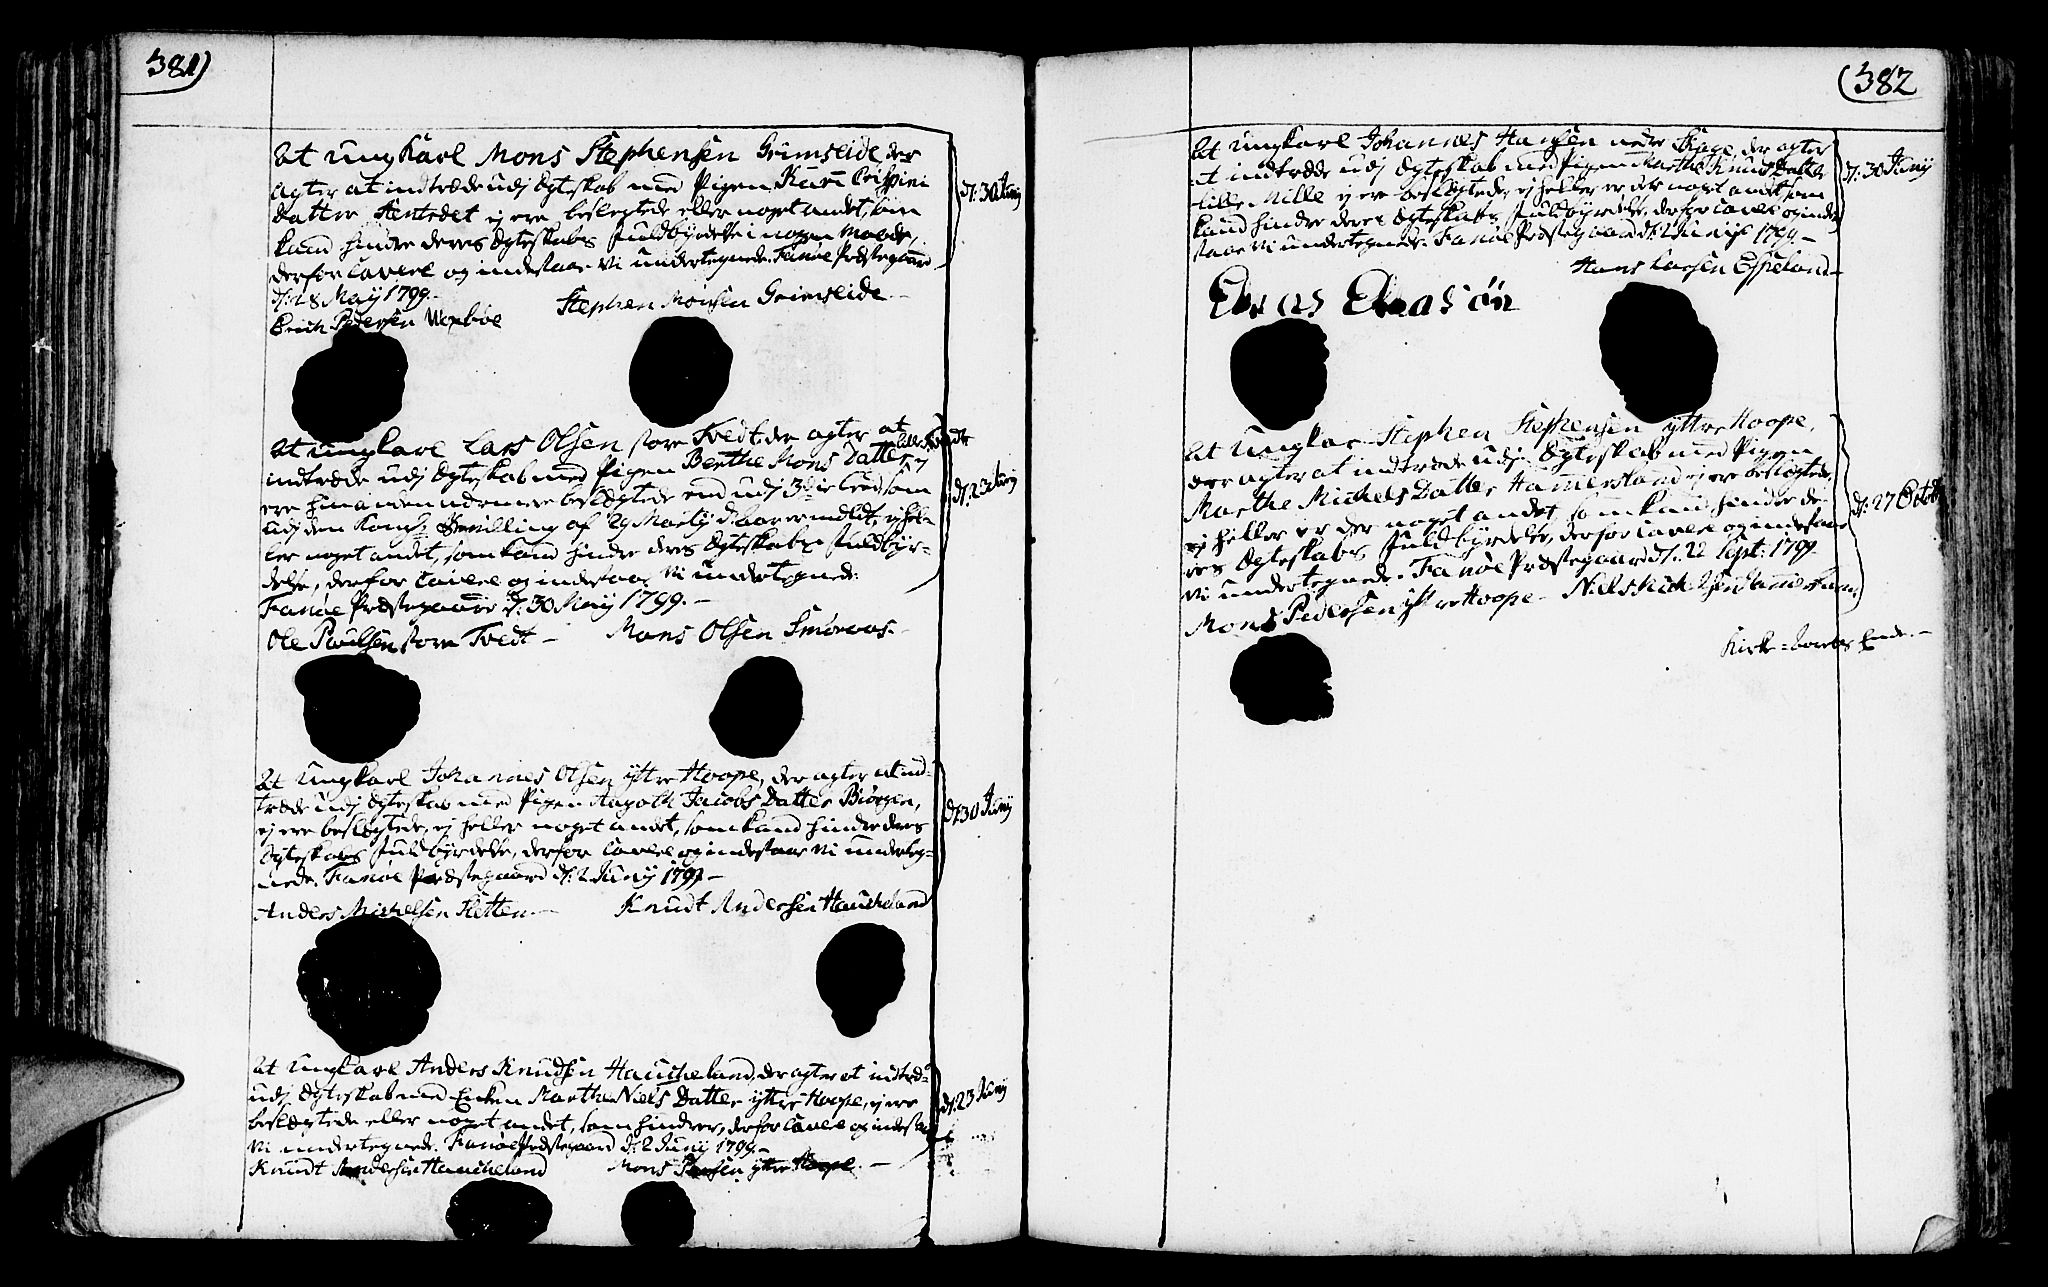 381)
At Ung Karl Mons Stephensen Grimseide, der
agter at indtræde udj Ægteskab med Pigen Kari Crispini
Datter Stentedet ej ere beslegtede eller noget andet, som
kand hindre deres Ægteskabs Fuldbyrdelse i nogen Maade,
derfor cavere og indestaae Vi undertegnede. Fanøe Præstegaard
d: 28 May 1799.
d: 30 Junij
Erich Pedersen Stephen Monsen Grimseide.
At Ungkarl Lars Olsen store Tvedt, der agter at
indtræde udj Ægteskab med Pigen Berthe Mons Datter, ej
ere hinanden nærmere beslægtede end udj 3die Leed, som
udj den Kongl: Bevilling af 29 Martij d: aar er meldt, ej hel-
ler noget andet, som kand hindre deres Ægteskabs Fuldbyr-
delse, derfor cavere og indestaae Vi undertegnede.
Fanøe Præstegaard d: 30 May 1799. -
d: 23 Junij
Ole Poulsen store Tvedt - Mons Olsen Smøraas. -
At Ungkarl Johannes Olsen yttre Hoope, der agter at ind-
træde udj Ægteskab med Pigen Aagoth Jacobs Datter Biørgen,
ej ere beslægtede, ej heller noget andet, som kand hindre deres
Ægteskabs Fuldbyrdelse, derfor cavere og indestaae Vi underteg-
nede. Fanøe Præstegaard d: 2 Junij 1799 -
d: 30 Junij
Anders Michelsen Sletten. - Knudt Andersen Haucheland
At Ungkarl Anders Knudsen Haucheland, der agter at indtræde
udj Ægteskab med Enken Marthe Niels Datter yttre Hoope, ej ere
beslægtede eller noget andet, som hindrer, derfor cavere og indestaae
Vi undertegnede. Fanøe Præstegaard d: 2 Junij 1799 -
d: 23 Junij
Knudt Andersen Haucheland Mons yttre Hoope. -
(382
At Ungkarl Johannes Hansen nedre Skage, der agter
at indtræde udj Ægteskab med Pigen Marthe Knuds Datter
lille Milde ej ere beslægtede, ej heller er der noget andet som
kand hindre deres Ægteskabs Fuldbyrdelse, derfor cavere og inde-
staae Vi undertegnede. Fanøe Præstegaard d: 2 Junij 1799. -
d: 30 Junij
Hans Larsen Espeland -
At Ungkar Stephen Stephensen yttre Hoope,
der agter at indtræde udj Ægteskab med Pigen
Marthe Michels Datter ej ere beslægtede,
ej heller er der noget andet som kan hindre de-
res Ægteskabs Fuldbyrdelse, derfor cavere og indestaae
Vi undertegnede. Fanøe Præstegaard d: 22 Sept: 1799.
d: 27 Octob
Mons Pedersen yttre Hoope - Niels Michelsen
Kirke-Bogens Ende. -